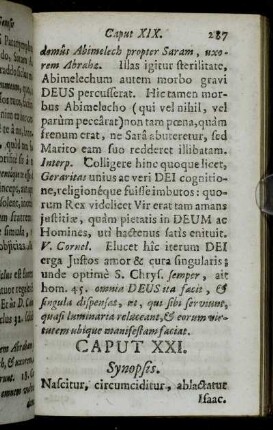 Caput XIX. 287
domûs Abimelech propter Saram, uxo-
rem Abrahæ. Illas igitur sterilitate,
Abimelechum autem morbo gravi
DEUS percusserat. Hic tamen mor-
bus Abimelecho (qui vel nihil, vel
parùm peccârat) non tam pœna, quàm
frenum erat, ne Sarâ abuteretur, sed
Marito eam suo redderet illibatam.
Interp. Colligere hinc quoque licet,
Geraritas unius ac veri DEI cognitio-
ne, religionéque fuisse imbutos: quo-
rum Rex videlicet Vir erat tam amans
justitiæ, quàm pietatis in DEUM ac
Homines, uti hactenus satis enituit.
V. Cornel. Elucet hîc iterum DEI
erga Justos amor & cura singularis;
unde optimè S. Chrys. semper, ait
hom. 45. omnia DEUS ita facit, &
singula dispensat, ut, qui sibi serviunt,
quasi luminaria reluceant, & eorum vir-
tutem ubique manifestam faciat.
CAPUT XXI.
Synopsis.
Nascitur, circumciditur, ablactatur
Isaac.